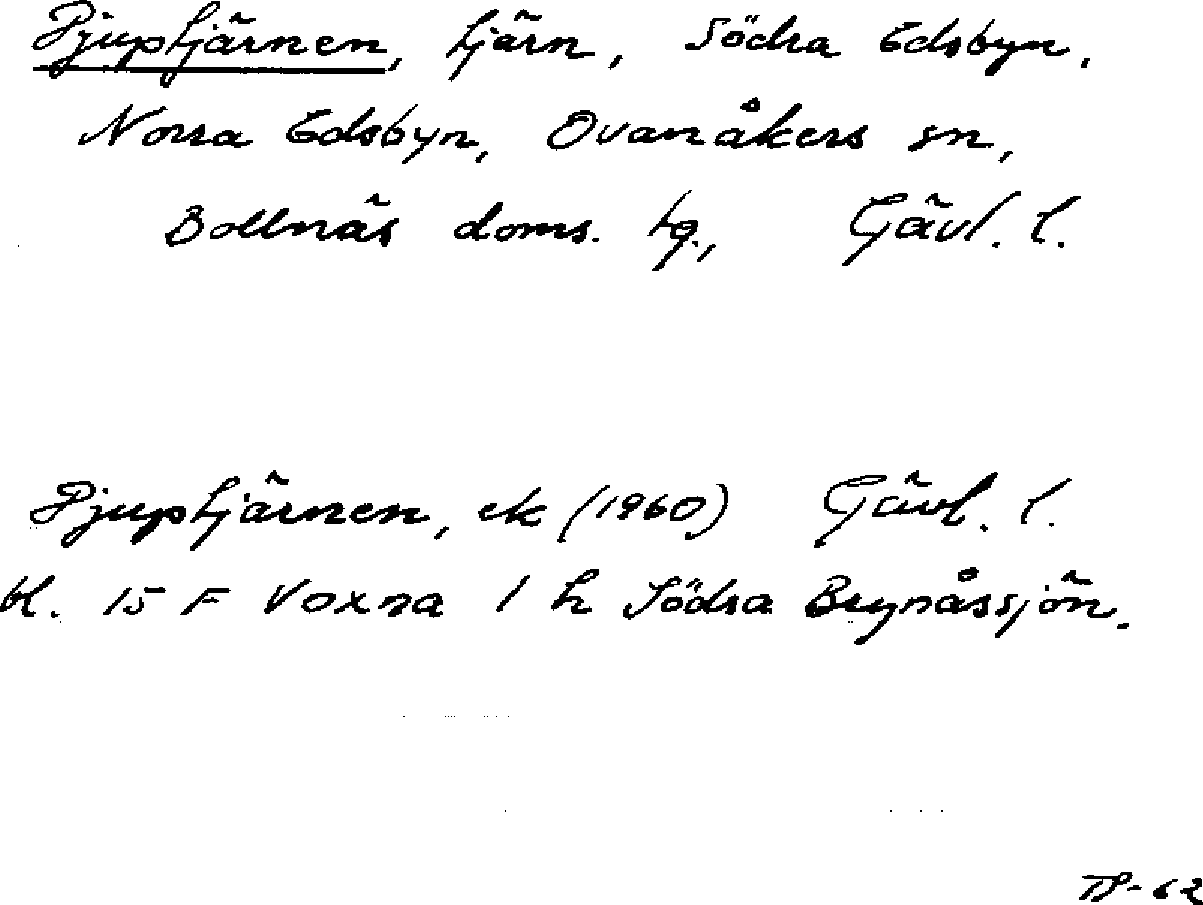 Djuptjärnen, tjärn, Södra Edsbyn,
Norra Edsbyn, Ovanåkers sn,
Bollnäs doms. tg., Gävl. l.
Djuptjärnen, ek (1960) Gävl. l.
bl. 15 F Voxna 1 h Södra Brynåssjön.
-62